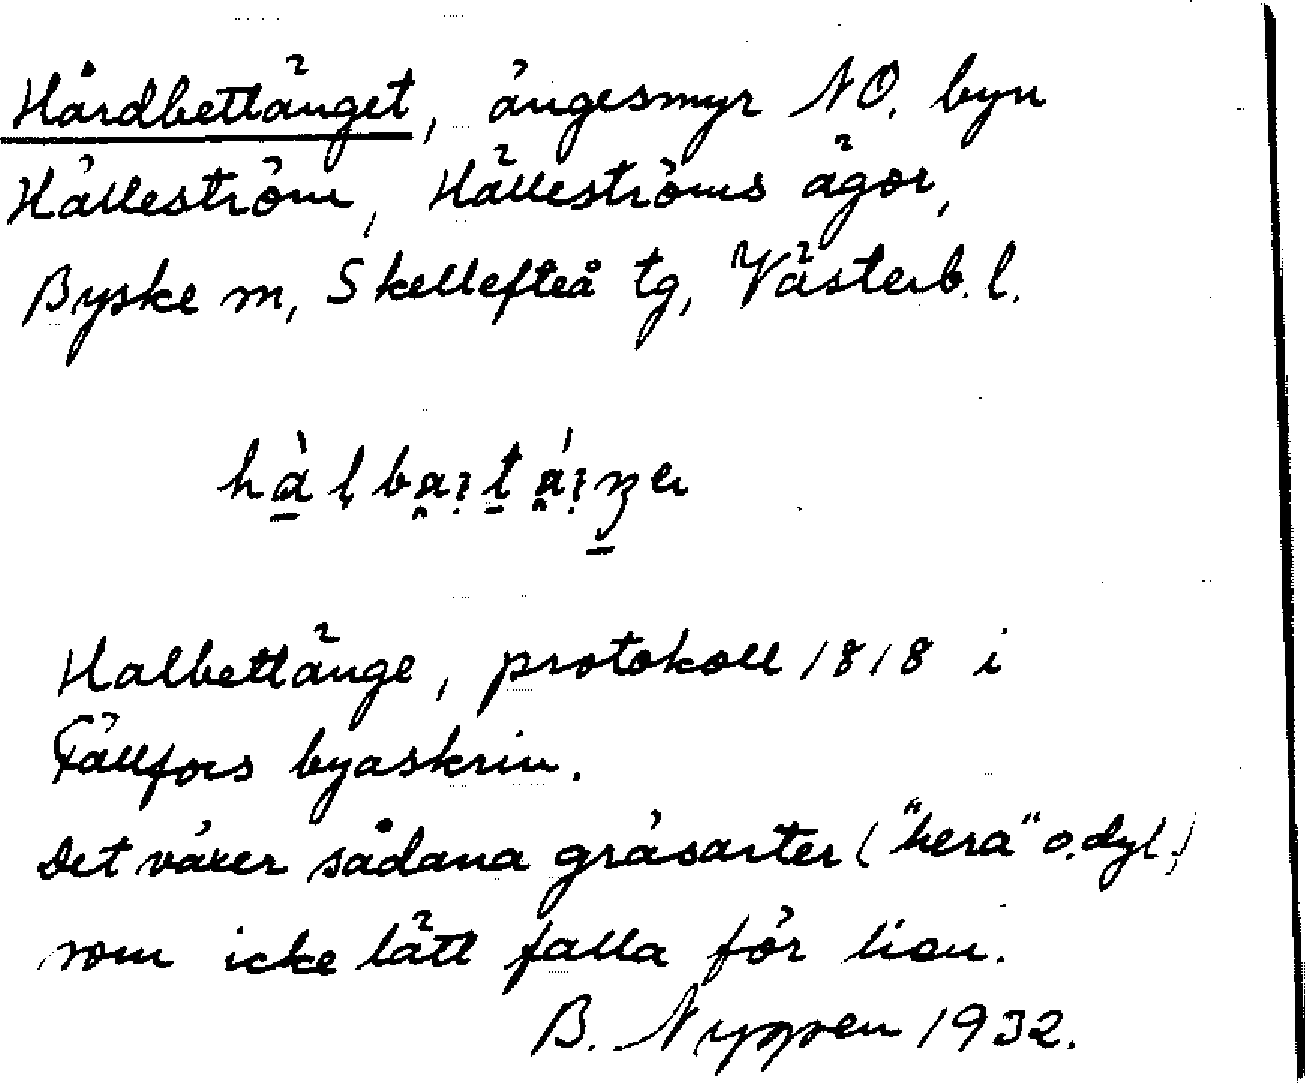 Hårdbettänget, ängesmyr NO. byn
Hälleström, Hälleströms ägor,
Byske sn, Skellefteå tg, Västerb. l.
Halbettänge, protokoll 1818 i
Fällfors byaskrin.
Det växer sådana gräsarter ("hera" o.dyl.)
som icke lätt falla för lien.
B. Nyppen 1932.